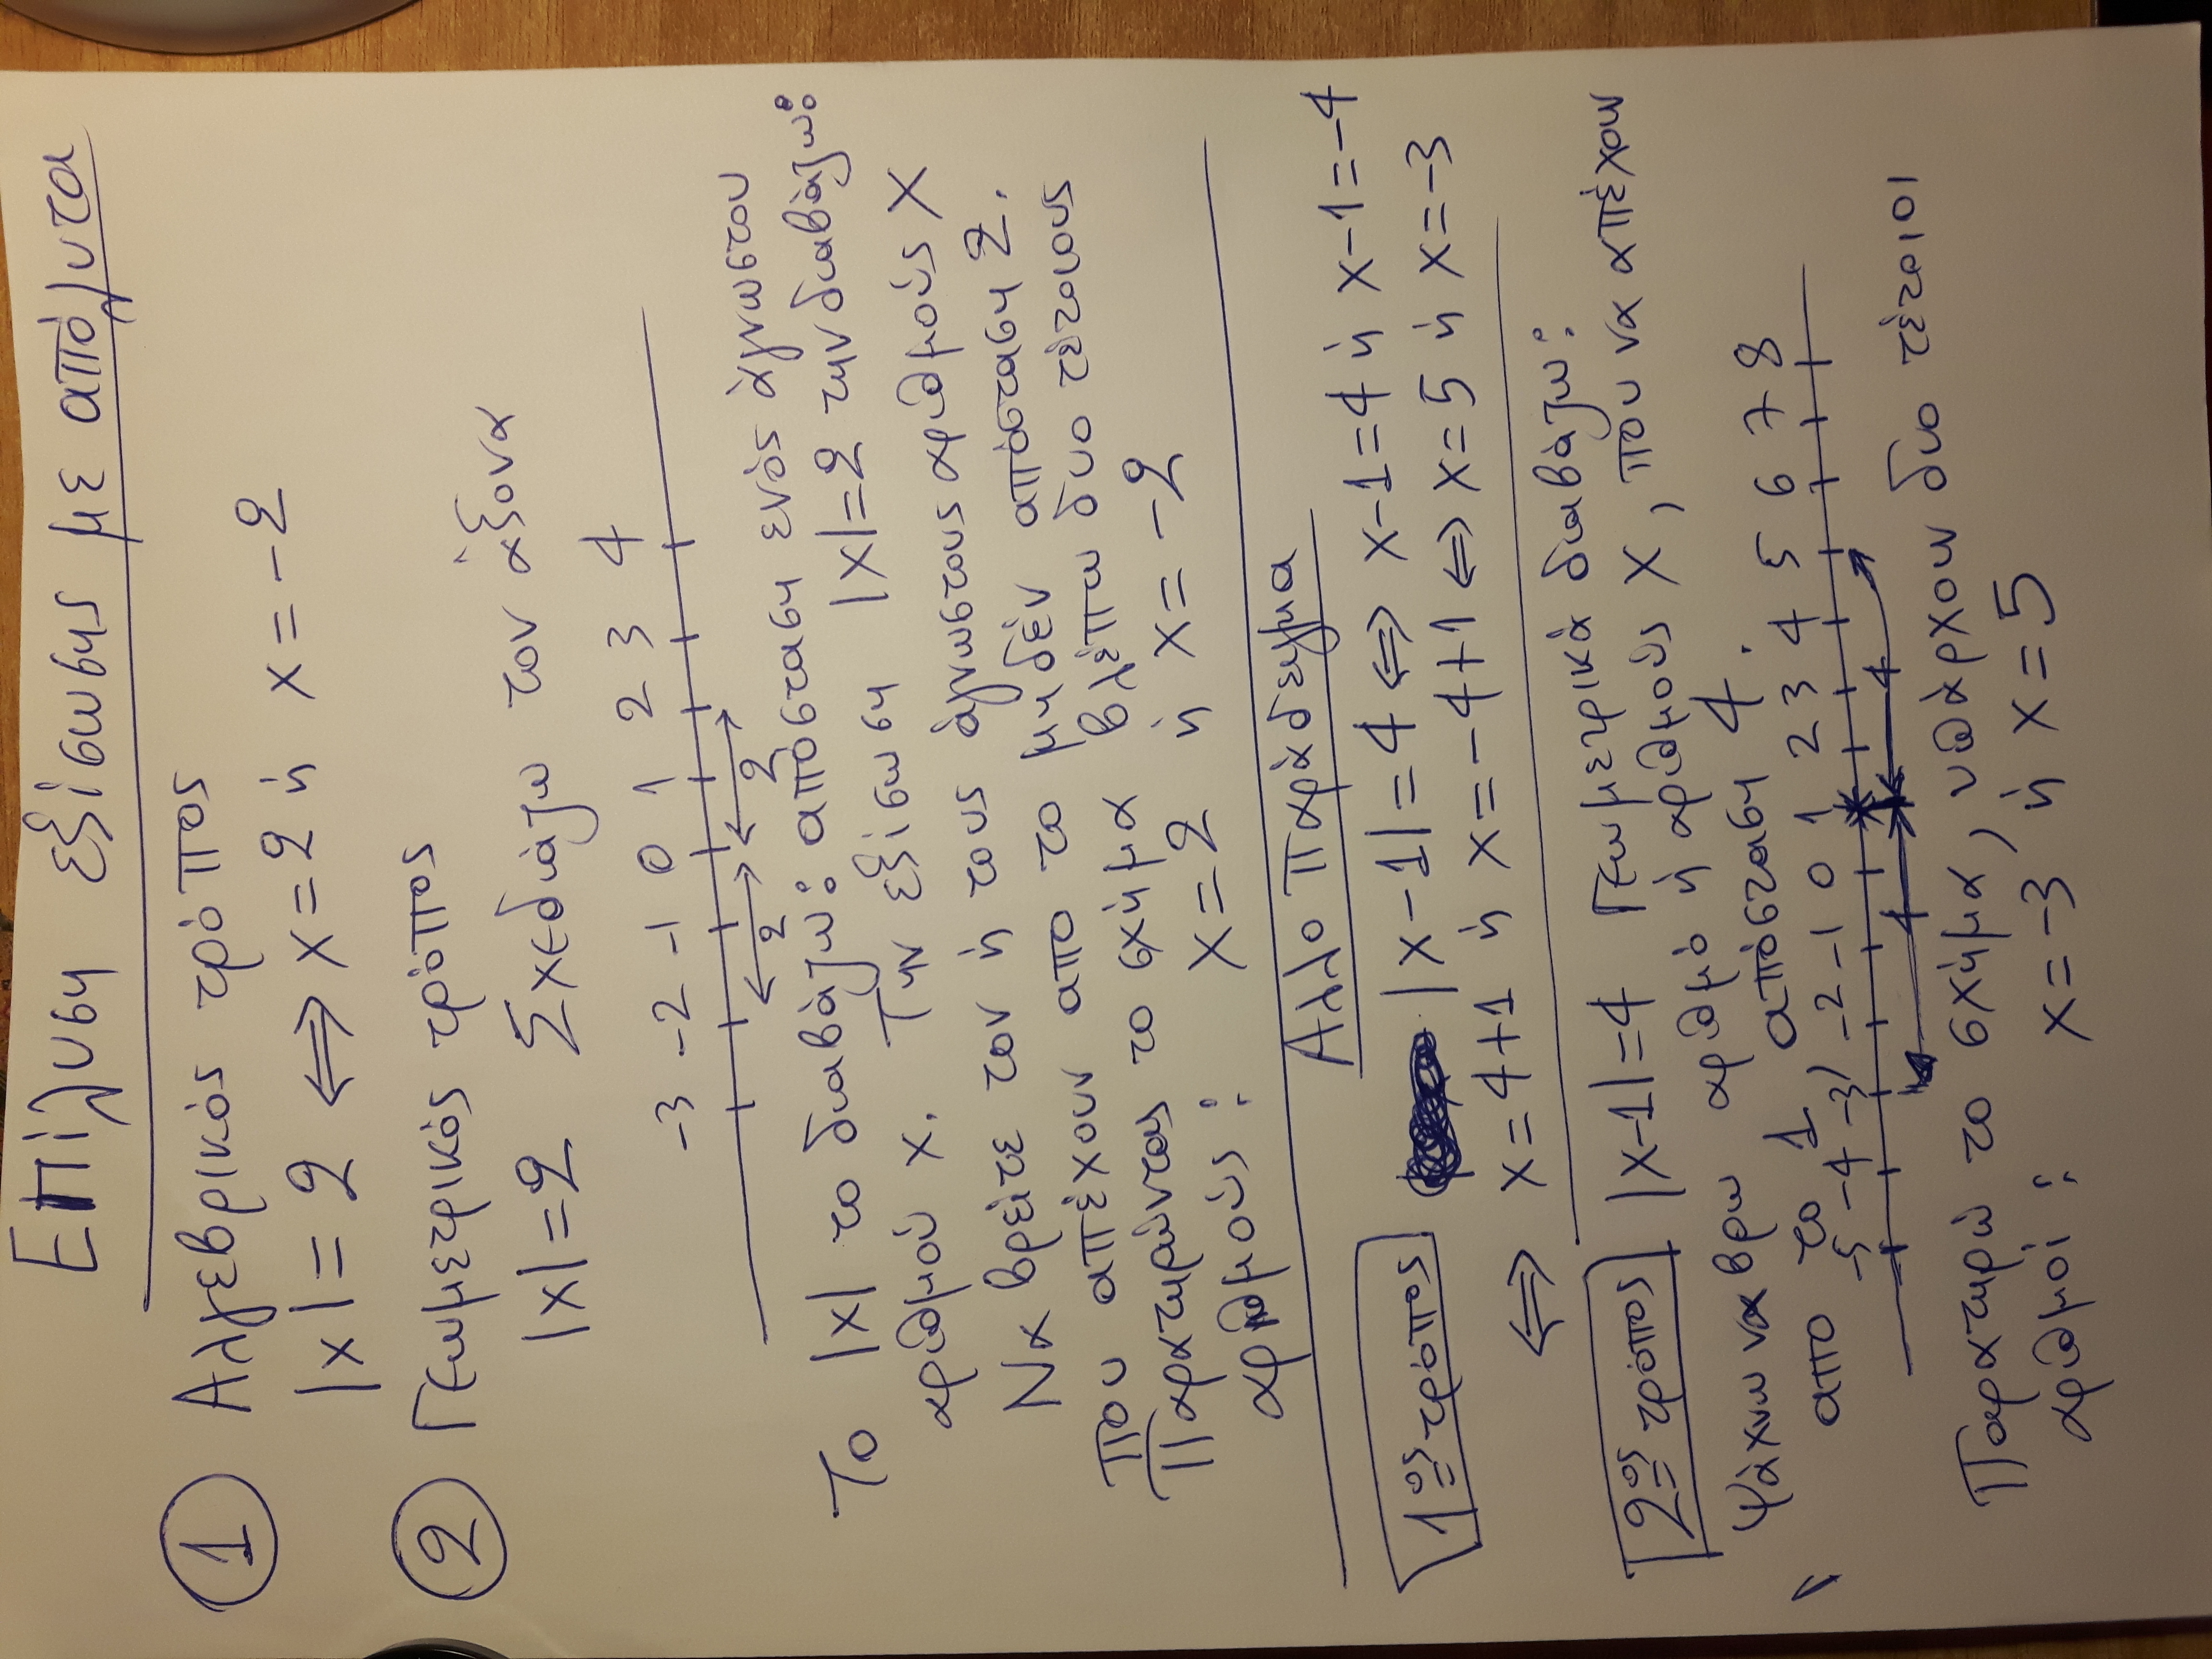 Επίλυση εξίσωσης με απόλυτα
① Αλγεβρικός τρόπος
|x| = 2 ⇔ x = 2 ή x = -2
② Γεωμετρικός τρόπος
|x| = 2 Σχεδιάζω τον άξονα
-3 -2 -1 0 1 2 3 4
2 2
Το |x| το διαβάζω: απόσταση ενός άγνωστου
αριθμού x. Την εξίσωση |x|=2 την διαβάζω:
Να βρείτε τον ή τους άγνωστους αριθμούς x
που απέχουν απο το μηδέν απόσταση 2.
Παρατηρώντας το σχήμα βλέπω δυο τέτοιους
αριθμούς: x=2 ή x=-2
Αλλο παράδειγμα
1ος τρόπος |x-1|=4 ⇔ x-1=4 ή x-1=-4
⇔ x=4+1 ή x=-4+1 ⇔ x=5 ή x=-3
2ος τρόπος |x-1|=4 Γεωμετρικά διαβάζω:
Ψάχνω να βρω αριθμό ή αριθμούς x, που να απέχουν
απο το 1 απόσταση 4.
-5 -4 -3 -2 -1 0 1 2 3 4 5 6 7 8
4 4
Παρατηρώ το σχήμα, υπάρχουν δυο τέτοιοι
αριθμοί: x=-3 ή x=5